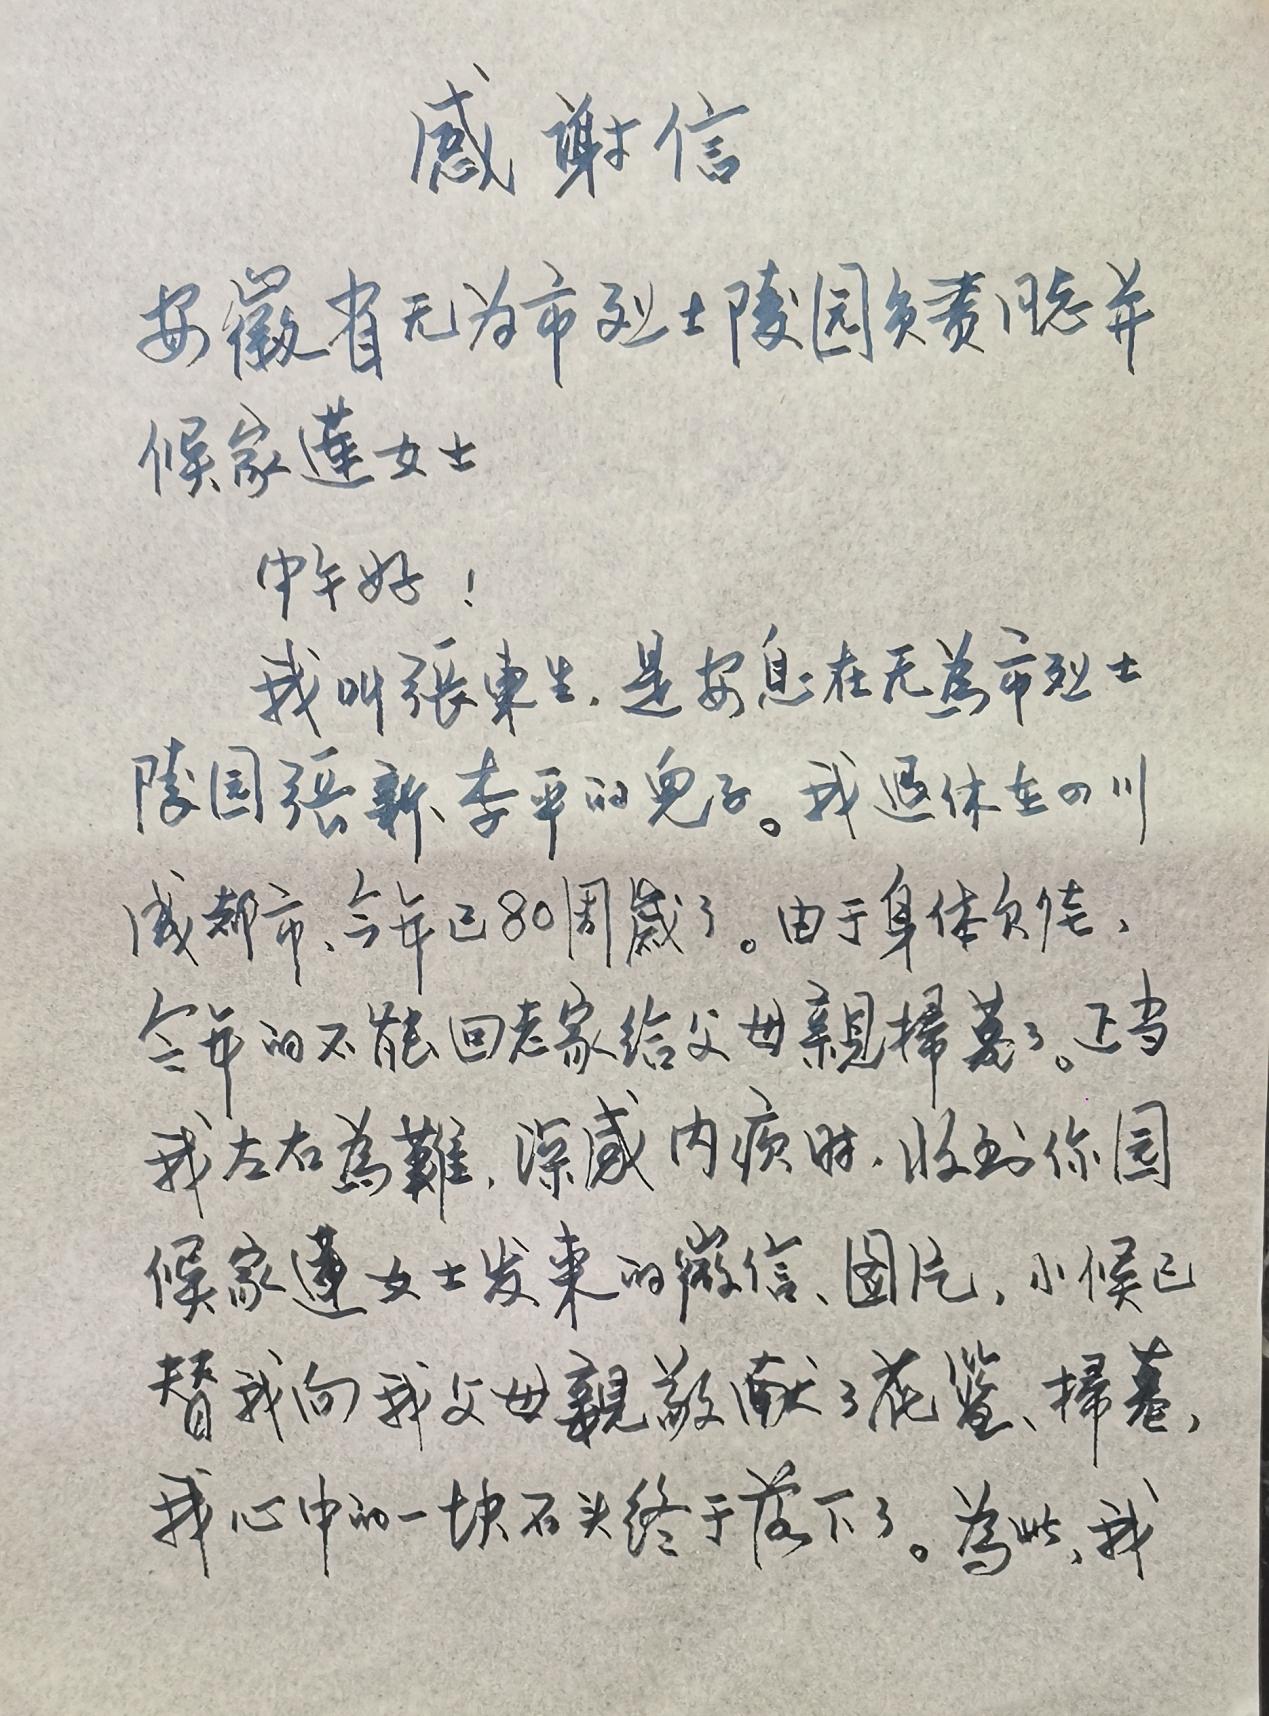 感谢信
安徽省无为市烈士陵园负责同志并
候家蓮女士
中午好！
我叫張東生，是安息在无為市烈士
陵园張新、李平的兒子。我退休在四川
成都市、今年已80周歲了。由于身体欠佳，
今年的不能回老家给父母親掃墓了。正当
我左右為難，深感内疚时，收到你园
候家蓮女士发来的微信、图片，小候已
替我向我父母親敬献了花篮、掃墓，
我心中的一块石头终于落下了。為此，我